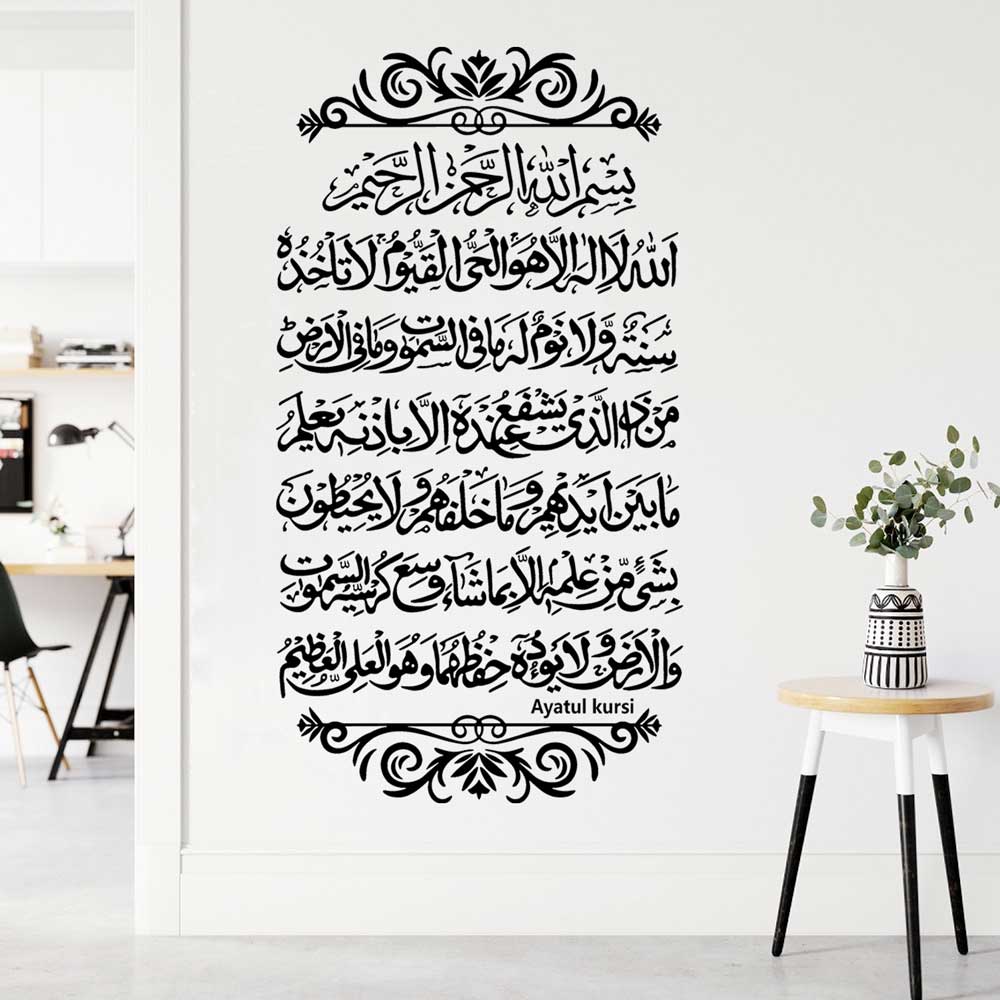 بِسْمِ اللهِ الرَّحْمٰنِ الرَّحِيْمِ
اَللهُ لَا اِلٰهَ اِلَّا هُوَ الْحَيُّ الْقَيُّوْمُ لَا تَأْخُذُهٗ
سِنَةٌ وَّلَا نَوْمٌ لَهٗ مَا فِي السَّمٰوٰتِ وَمَا فِي الْاَرْضِ ط
مَنْ ذَا الَّذِيْ يَشْفَعُ عِنْدَهٗ اِلَّا بِاِذْنِهٖ يَعْلَمُ
مَا بَيْنَ اَيْدِيْهِمْ وَمَا خَلْفَهُمْ وَلَا يُحِيْطُوْنَ
بِشَيْءٍ مِّنْ عِلْمِهٖ اِلَّا بِمَا شَآءَ وَسِعَ كُرْسِيُّهُ السَّمٰوٰتِ
وَالْاَرْضَ وَلَا يَئُوْدُهٗ حِفْظُهُمَا وَهُوَ الْعَلِيُّ الْعَظِيْمُ
Ayatul kursi